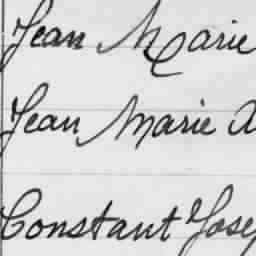 Jean Marie
Jean Marie A
Constant Jose